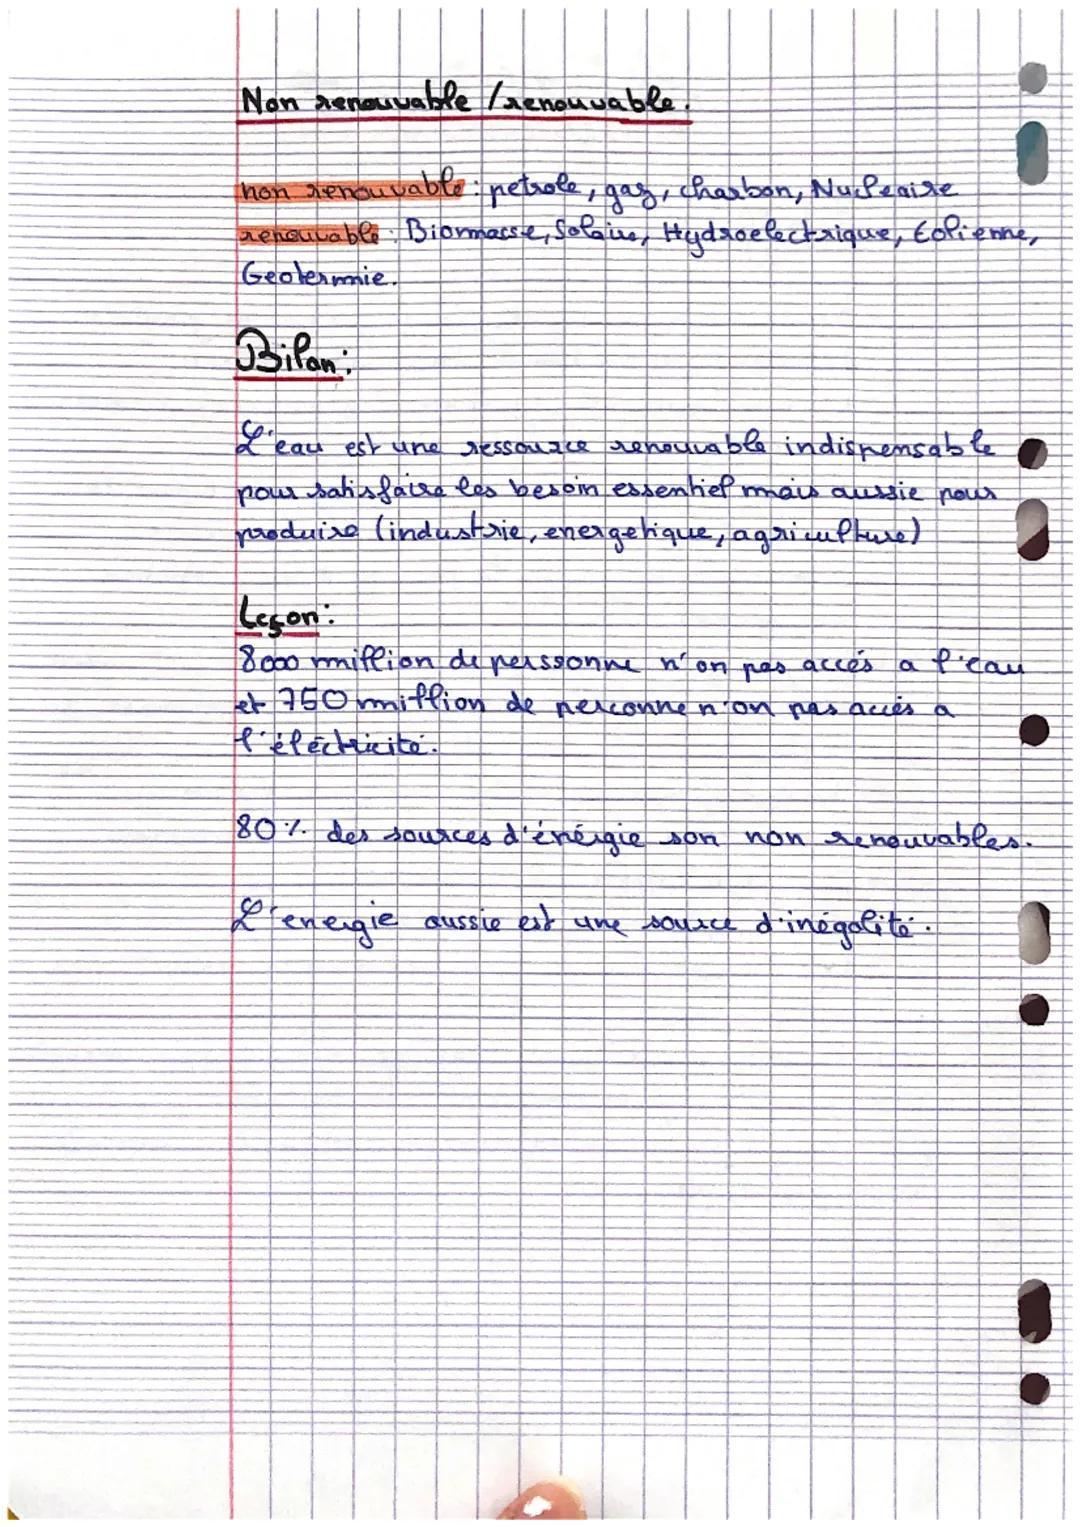 Non renouvable / renouvable.
non renouvable : petrole, gaz, charbon, Nucleaire
renouvable : Biormasse, Solaire, Hydroelectrique, Eolienne,
Geotermie.
Bilan :
L'eau est une ressource renouvable indispensable
pour satisfaire les besoin essentiel mais aussie pour
produire (industrie, energetique, agriculture)
Leçon :
8000 million de perssonne n'on pas accés a l'eau
et 750 million de perconne n'on pas accés a
l'éléctricité.
80% des sources d'énérgie son non renouvables.
L'energie aussie est une source d'inégalité.